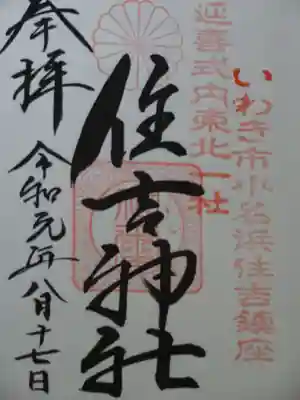 いわき市小名浜住吉鎮座
延喜式内東北一社
住吉神社
奉拝
令和元年八月十七日